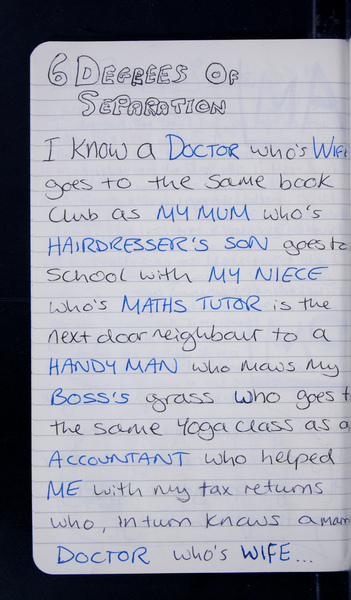 6 DEGREES OF
SEPARATION
I know a DOCTOR who's WIFE
goes to the same book
club as MY MUM who's
HAIRDRESSER'S SON goes to
school with MY NIECE
who's MATHS TUTOR is the
next door neighbour to a
HANDY MAN who mows my
BOSS'S grass who goes t
the same yoga class as a
ACCOUNTANT who helped
ME with my tax returns
who, in turn knows a man
DOCTOR who's WIFE...